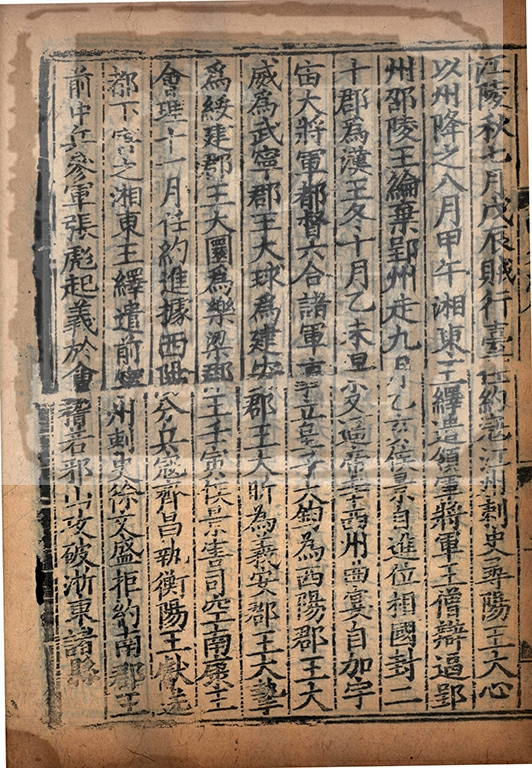 江陵秋七月戊辰賊行臺任約寇江州刺史尋陽王大心
以州降之八月甲午湘東王繹遣領軍將軍王僧辯逼郢
州邵陵王綸棄郢州走九月乙亥侯景自進位相國封二
十郡為漢王冬十月乙未景又逼帝幸西州曲宴自加宇
宙大將軍都督六合諸軍事立皇子大鈞為西陽郡王大
威為武寧郡王大球為建安郡王大昕為義安郡王大摯
為綏建郡王大圜為樂梁郡王壬寅侯景害司空南康王
會理十一月任約進據西陽分兵寇齊昌執衡陽王獻送
都下害之湘東王繹遣前寧州刺史徐文盛拒約南郡王
前中兵參軍張彪起義於會稽若邪山攻破浙東諸縣